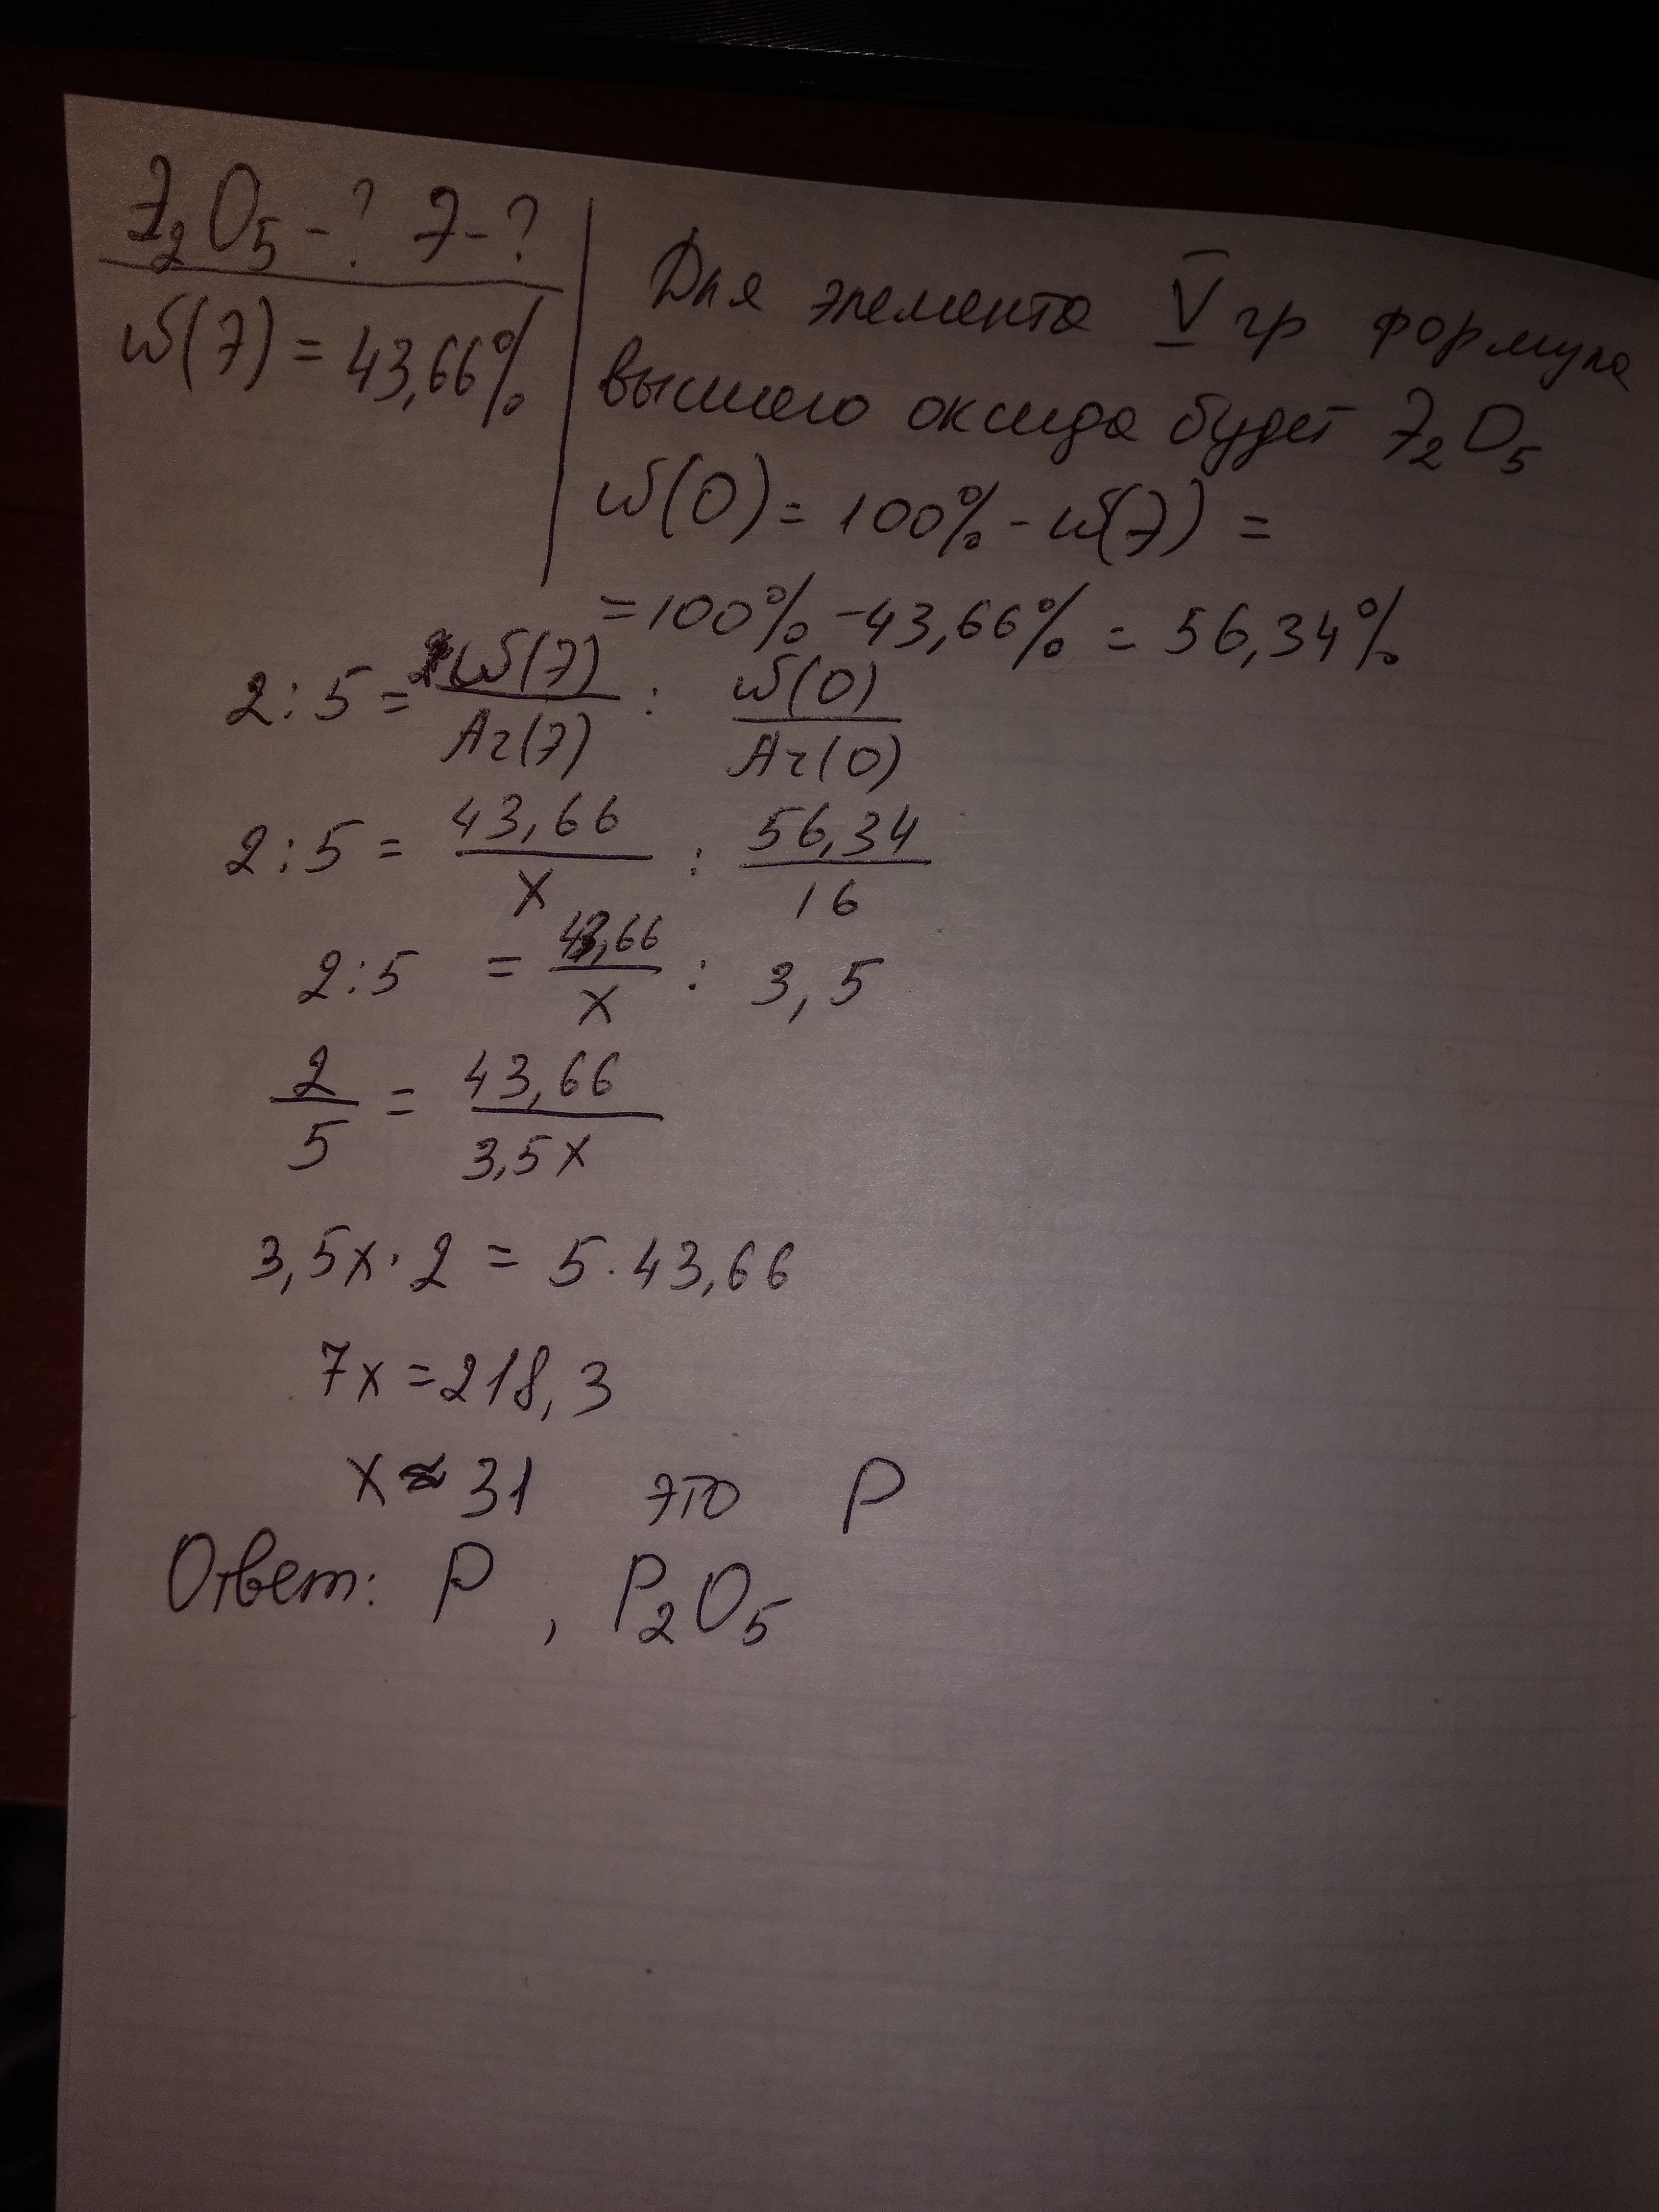 Э₂O₅ - ? Э - ?
ω(Э) = 43,66%
Для элемента V гр формула
высшего оксида будет Э₂O₅
ω(O) = 100% - ω(Э) =
= 100% - 43,66% = 56,34%
2 : 5 = ω(Э)/Ar(Э) : ω(O)/Ar(O)
2 : 5 = 43,66/x : 56,34/16
2 : 5 = 43,66/x : 3,5
2/5 = 43,66/3,5x
3,5x · 2 = 5 · 43,66
7x = 218,3
x ≈ 31 это P
Ответ: P , P₂O₅